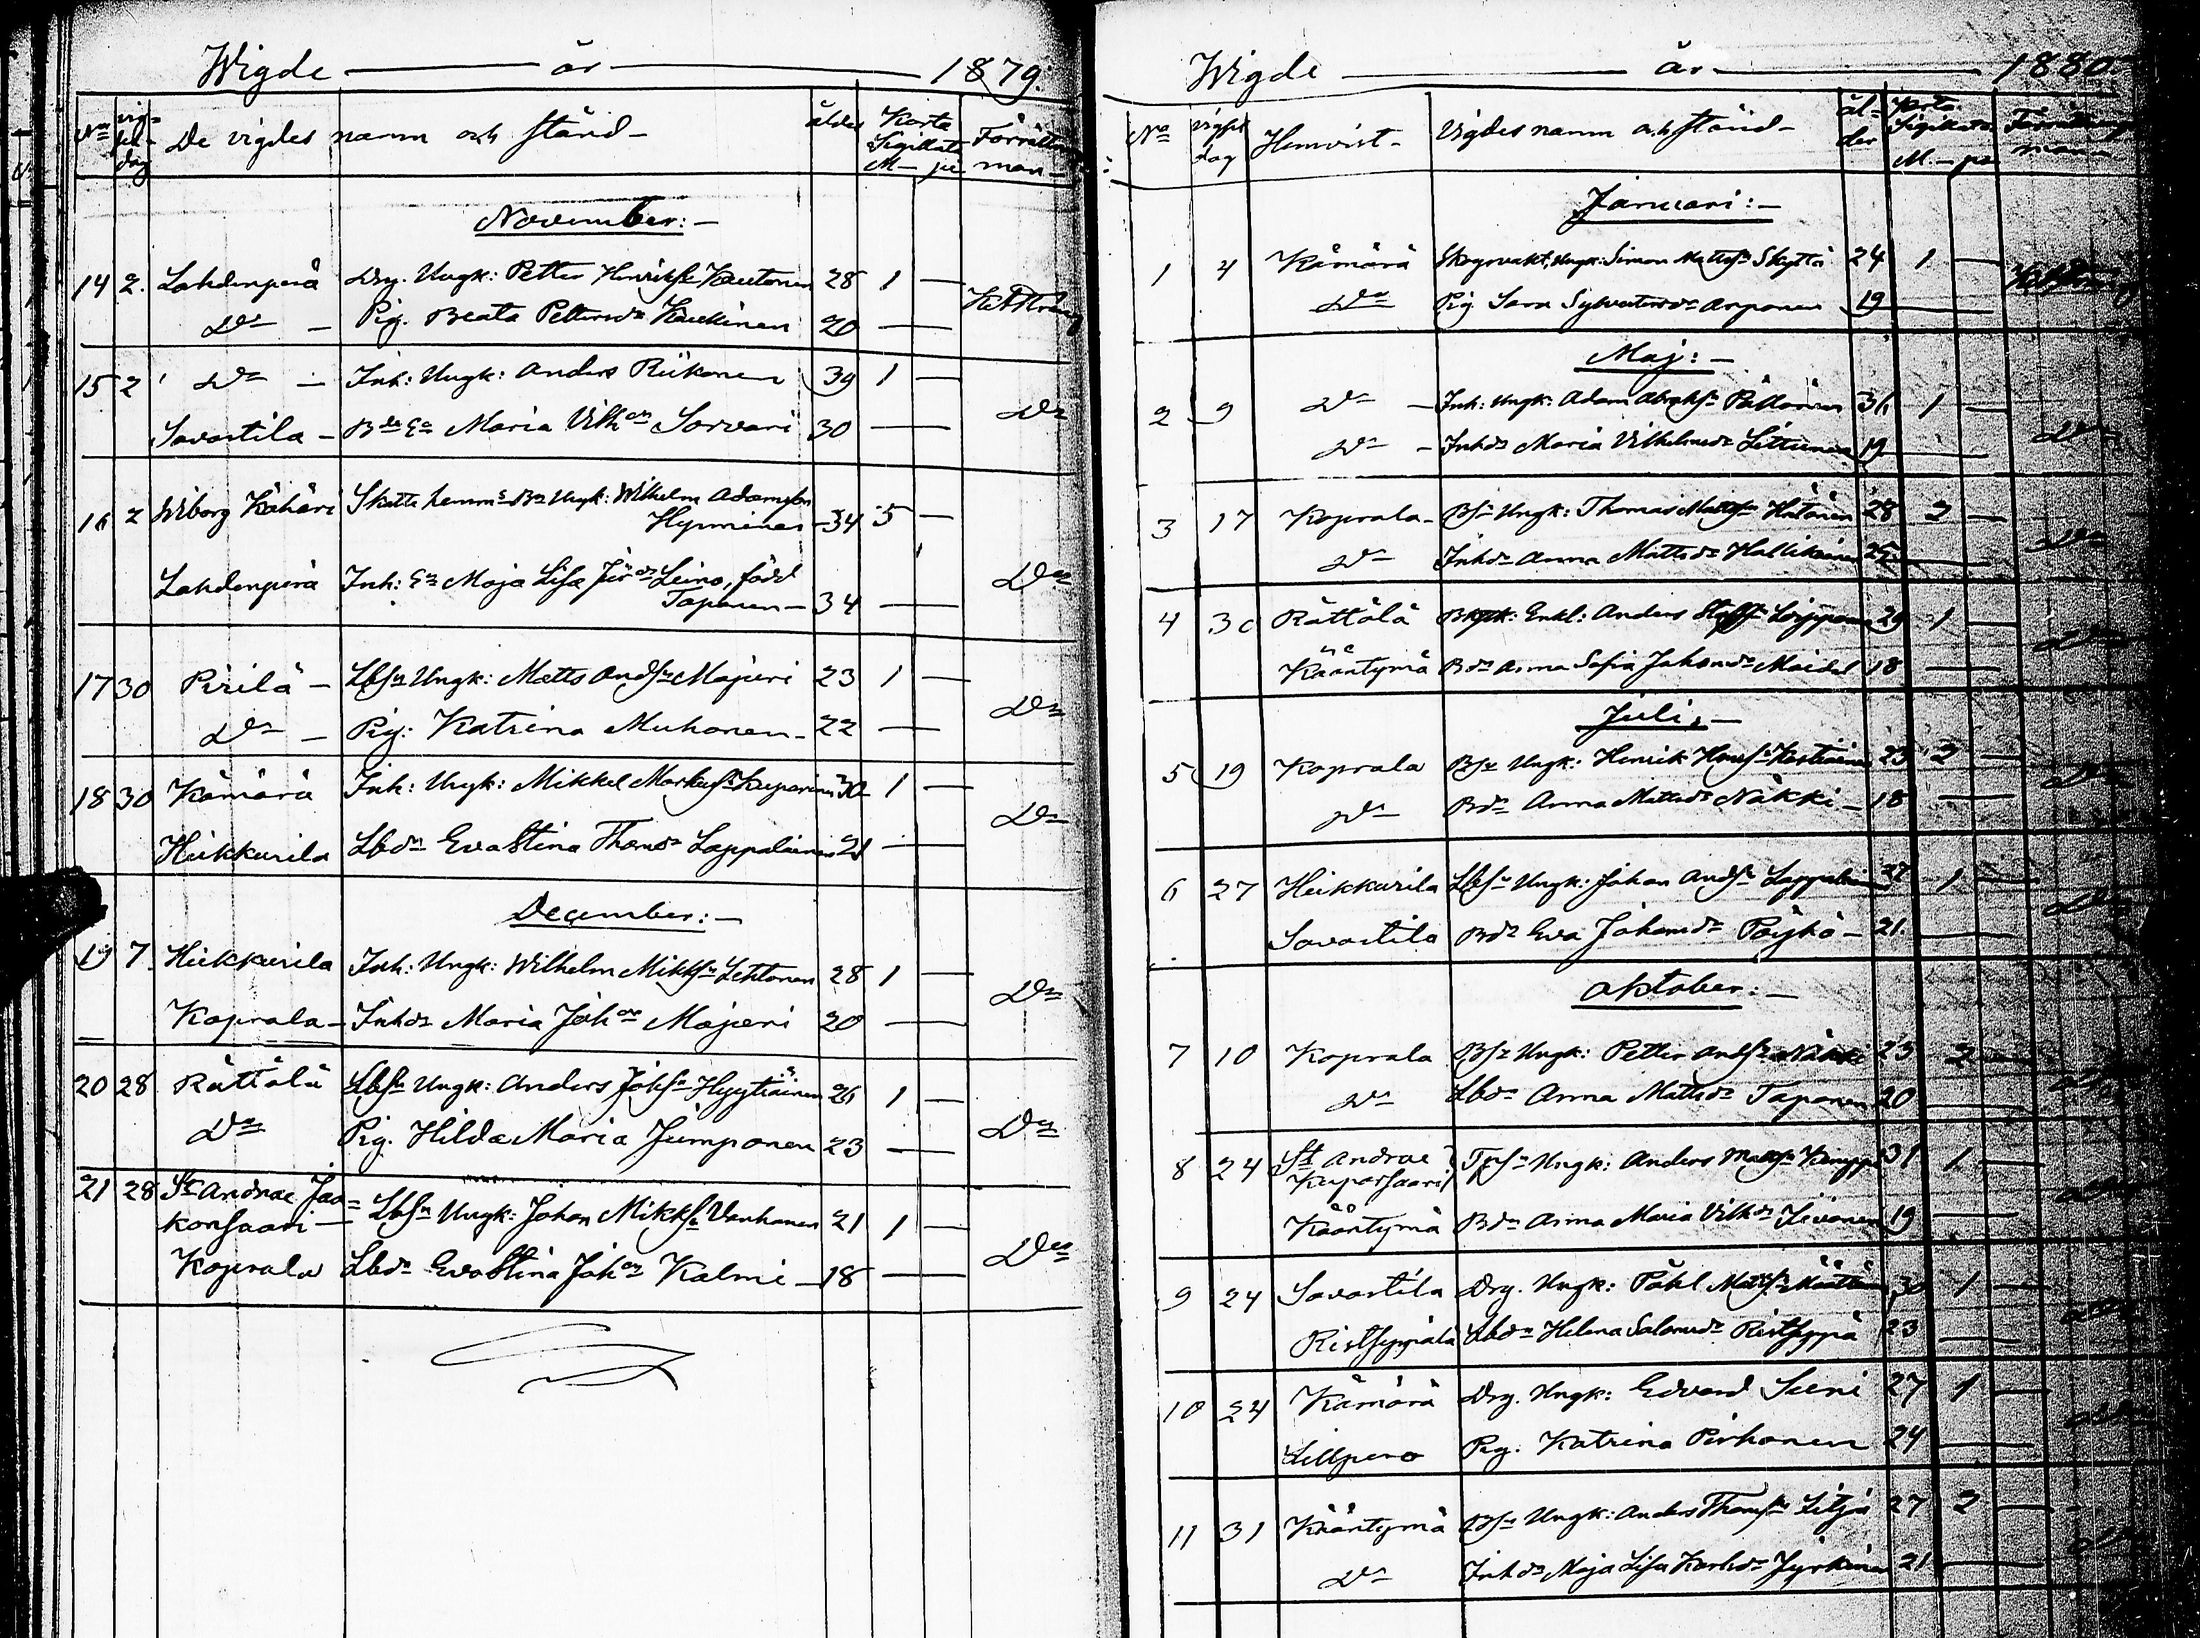 Wigde — år — 1879.
No vigsel- dag De vigdes namn och stånd — ålder Karta Sigillata M — pi Förrättnings man —
November: —
14 2. Lahdenperä Drg. Ungk: Petter Henrikss. Kautonen 28 1 —
Do — Pig. Beata Pettersdr Kaukinen 20 —
15 2 Do — Inh: Ungk: Anders Riikonen 39 1 —
Savastila — Bde Ea Maria Vilh Sorvari 30 — Do
16 2 Wiborg Kähäri Skatte hemms Bn Ungk: Wilhelm Adamsson
Hyminen — 34 5 —
Lahdenperä Inh: Ea Maja Lisa Leino, född
Taponen — 34 — Do
17 30 Pirilä — Lbsn Ungk: Matts Andsn Majuri 23 1 —
Do — Pig: Katrina Muhonen — 22 — Do
18 30 Kämärä Inh: Ungk: Mikkel Markussn Kuparinen 30 1 —
Heikkurila Lbdr Eva Stina Thomdr Lappalainen 21 — Do
December: —
19 7. Heikkurila Inh: Ungk: Wilhelm Mikksn Lehtonen 28 1 —
Koprala — Inhdr Maria Joh Majuri 20 — Do
20 28 Rättälä Lbsn Ungk: Anders Johsn Hyytiäinen 26 1 —
Do Pig. Hilda Maria Jumponen 23 — Do
21 28 St Andrae Jaa=
konsaari — Lbsn Ungk: Johan Mikksn Vanhanen 21 1 —
Koprala Lbdr Eva Stina Joh Kalmi — 18 — Do
Wigde — år — 1880.
No vigsel dag Hemvist — Vigdes namn och stånd — ålder Karta Sigillata M. — pi Förrättnings man —
Januari: —
1 4 Kämärä Skogsvakt, Ungk: Simon Mattssn Skyttä 24 1 —
Do Pig Sara Sylvestersdr Arponen 19 —
Maj: —
2 9 Do — Inh: Ungk: Adam Abrahsn 36 1 —
Do — Inhdr Maria Vilhelmsdr 19 — Do
3 17 Koprala — Bsn Ungk: Thomas Mattssn Hätönen 28 2 —
Do Inhdr Anna Mattsdr Hallikainen 25 — Do
4 30 Rättälä Enkl: Anders Staffsn Loipponen 29 1 —
Kääntymä Bdr Anna Sofia Johansdr Maidel 18 — Do
Juli, —
5 19 Koprala Bsn Ungk: Henrik Henrsn Hostiainen 23 2 —
Do Bdr Anna Mattsdr Näkki — 18 — Do
6 27 Heikkurila Lbsn Ungk: Johan Andsn Lappalainen 22 1 —
Savastila Bdr Eva Johansdr Pöyhö — 21. — Do
Oktober: —
7 10 Koprala Bsn Ungk: Petter Andsn Näkki 23 2 —
Do Lbdr Anna Mattsdr Taponen 20 —
8 24 St Andrae
Kuparsaari Ungk: Anders Mattsn Kemppi 31 1 —
Kääntymä Bdr Anna Maria Vilhdr Iivonen 19 —
9 24 Savastila Drg. Ungk: Påhl Mattsn Määttänen 30 1 —
Ristseppälä Lbdr Helena Salomdr Ristseppä 23 —
10 24 Kämärä Drg. Ungk: Edvard Suni 27 1 —
Lillpero Pig. Katrina Pirhonen 24 —
11 31 Kääntymä Bsn Ungk: Anders Thomsn Litja 27 2 —
Do Inhdr Maja Lisa Karlsdr Jyrkinen 21 —